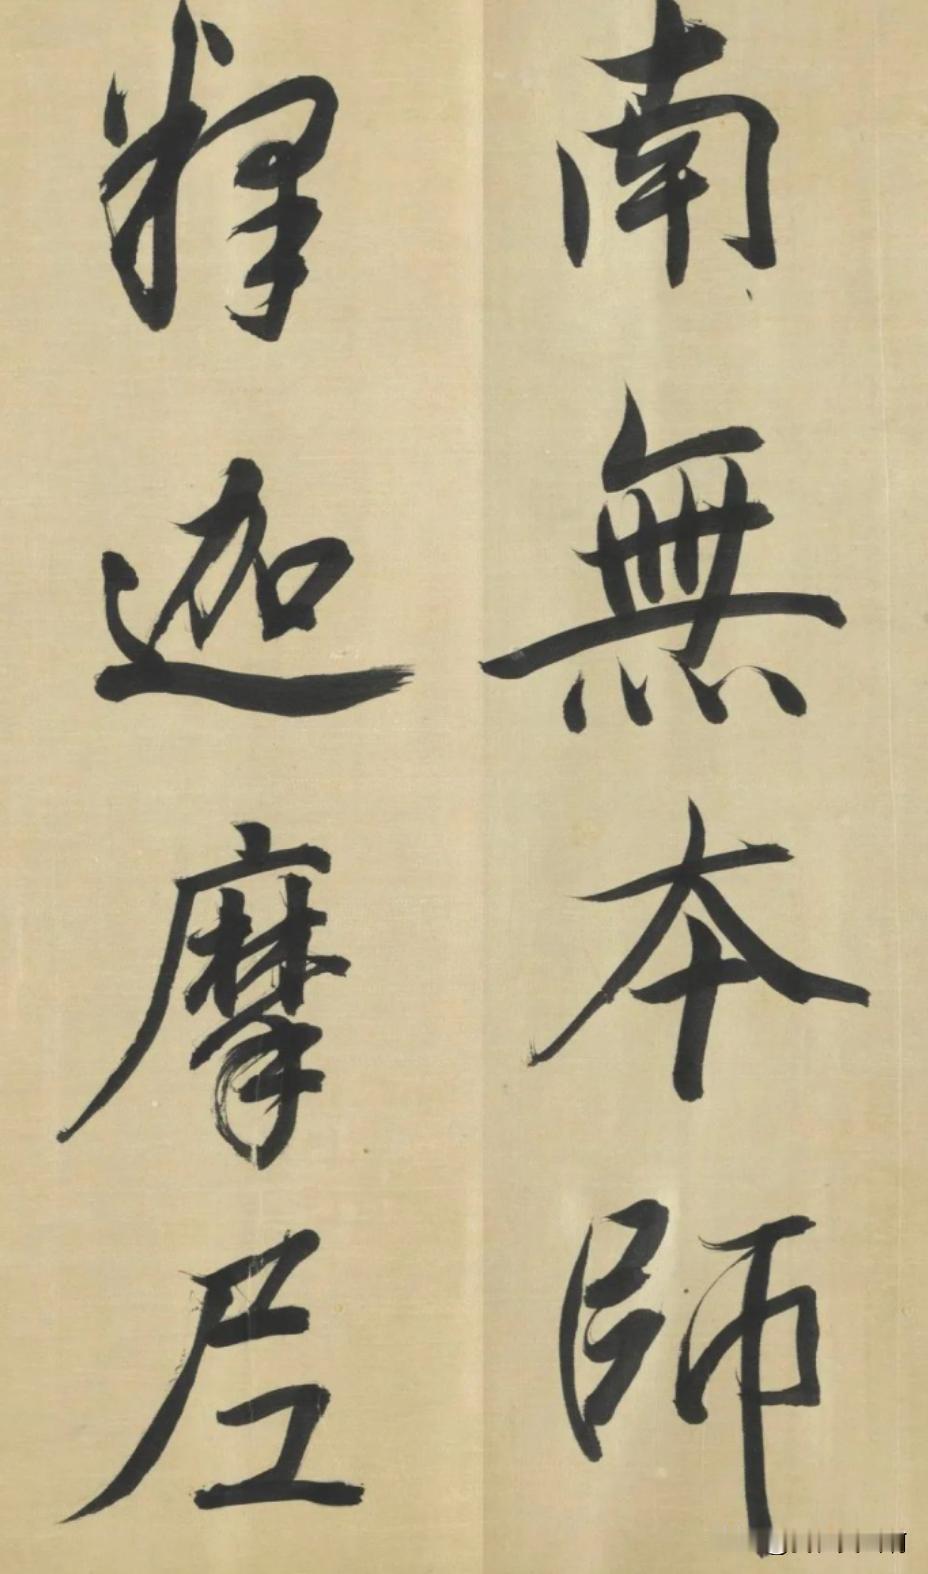 南無本師
釋迦摩尼